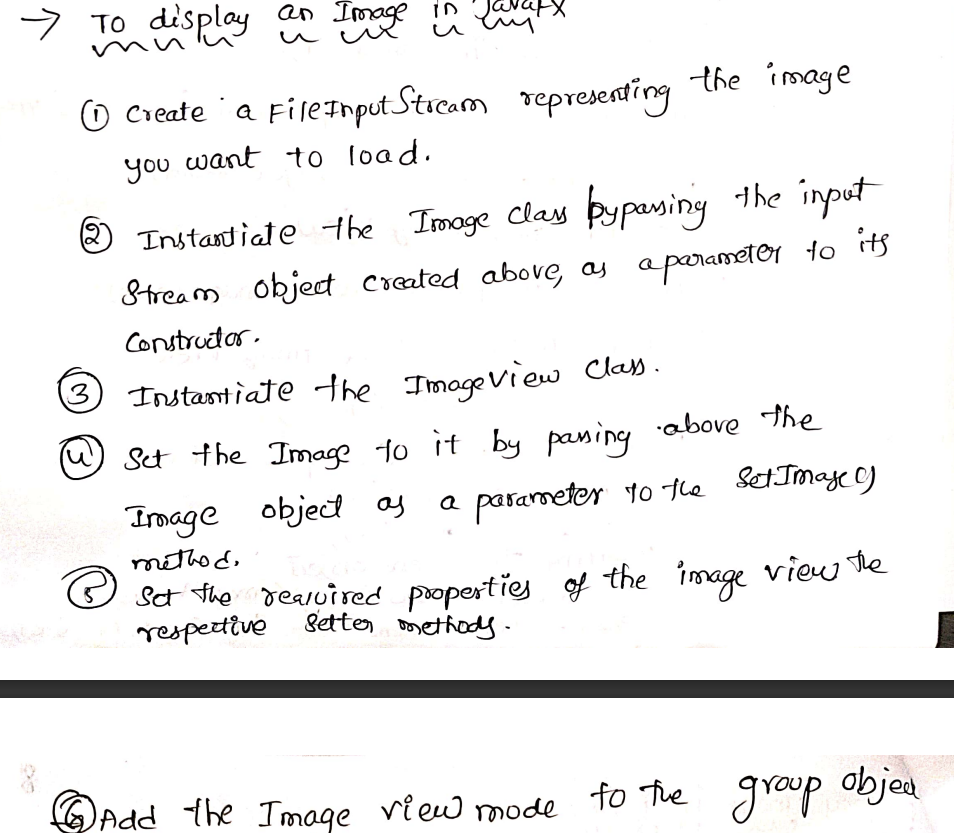 → To display an Image in JavaFX
① Create a FileInputStream representing the image
you want to load.
② Instantiate the Image class bypassing the input
Stream object created above, as a parameter to its
Constructor.
③ Instantiate the Imageview class.
④ Set the Image to it by passing above the
Image object as a parameter to the SetImage()
method.
⑤ Set the reauired properties of the image view the
respective setter methods.
⑥ Add the Image view mode to the group object